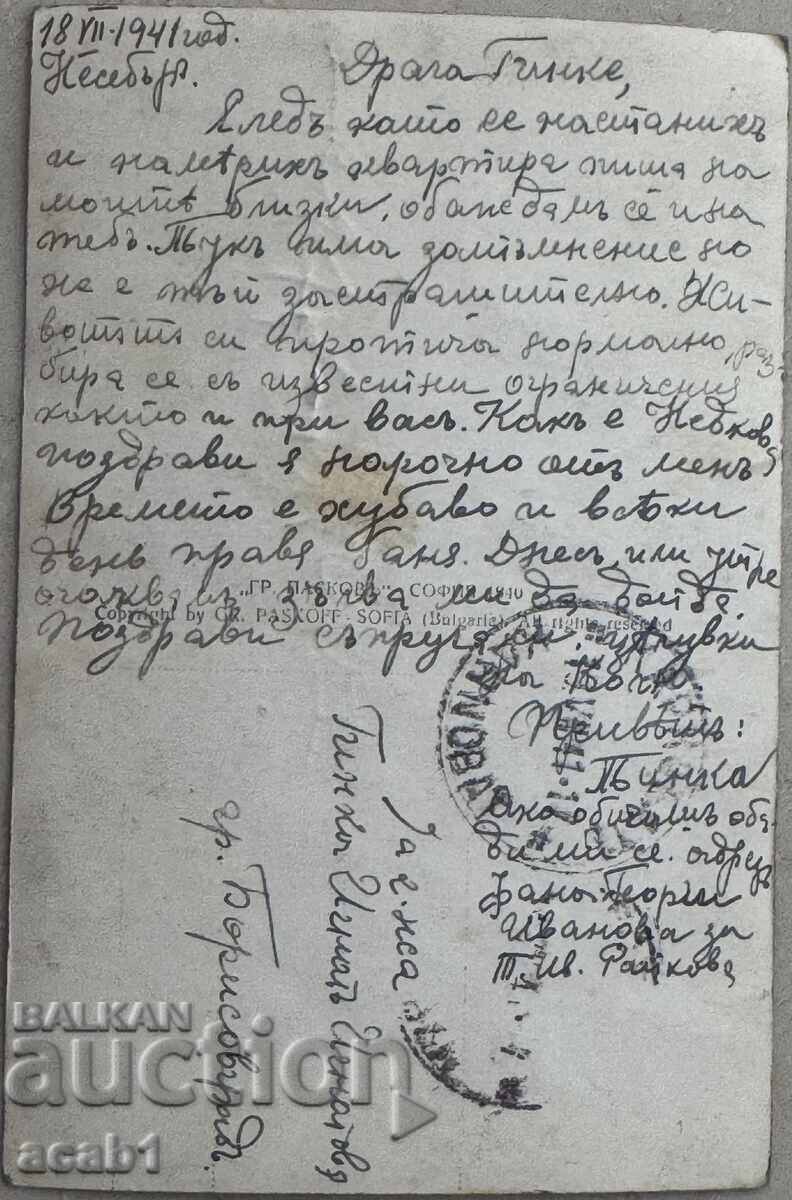 18 VII-1941 год.
Несебъръ.
Драга Гинке,
Следъ като се настанихъ
и намѣрихъ квартира пиша на
моитѣ близки, обаждамъ се и на
тебъ. Тукъ има затъмнение но
не е тъй застрашително. Жи-
вотътъ си протича нормално, раз-
бира се съ известни ограничения
както и при васъ. Какъ е
поздрави я нарочно отъ менъ
Времето е хубаво и всѣки
день правя баня. Днесъ или утре
очаквамъ зълва ми да дойде.
„ГР. ПАСКОВЪ“ - СОФИЯ 1940
Copyright by GR. PASKOFF - SOFIA (Bulgaria). All rights reserved
Поздрави съпруга си, целувки
на
Привѣтъ:
Тинка
Ако обичашъ оба-
ди ми се. адресъ
Иванова за
Т. Ив. Райкова
За г-жа
Гинка Игнатъ Игнатова
гр. Борисовградъ.
BALKAN
auction
acab1